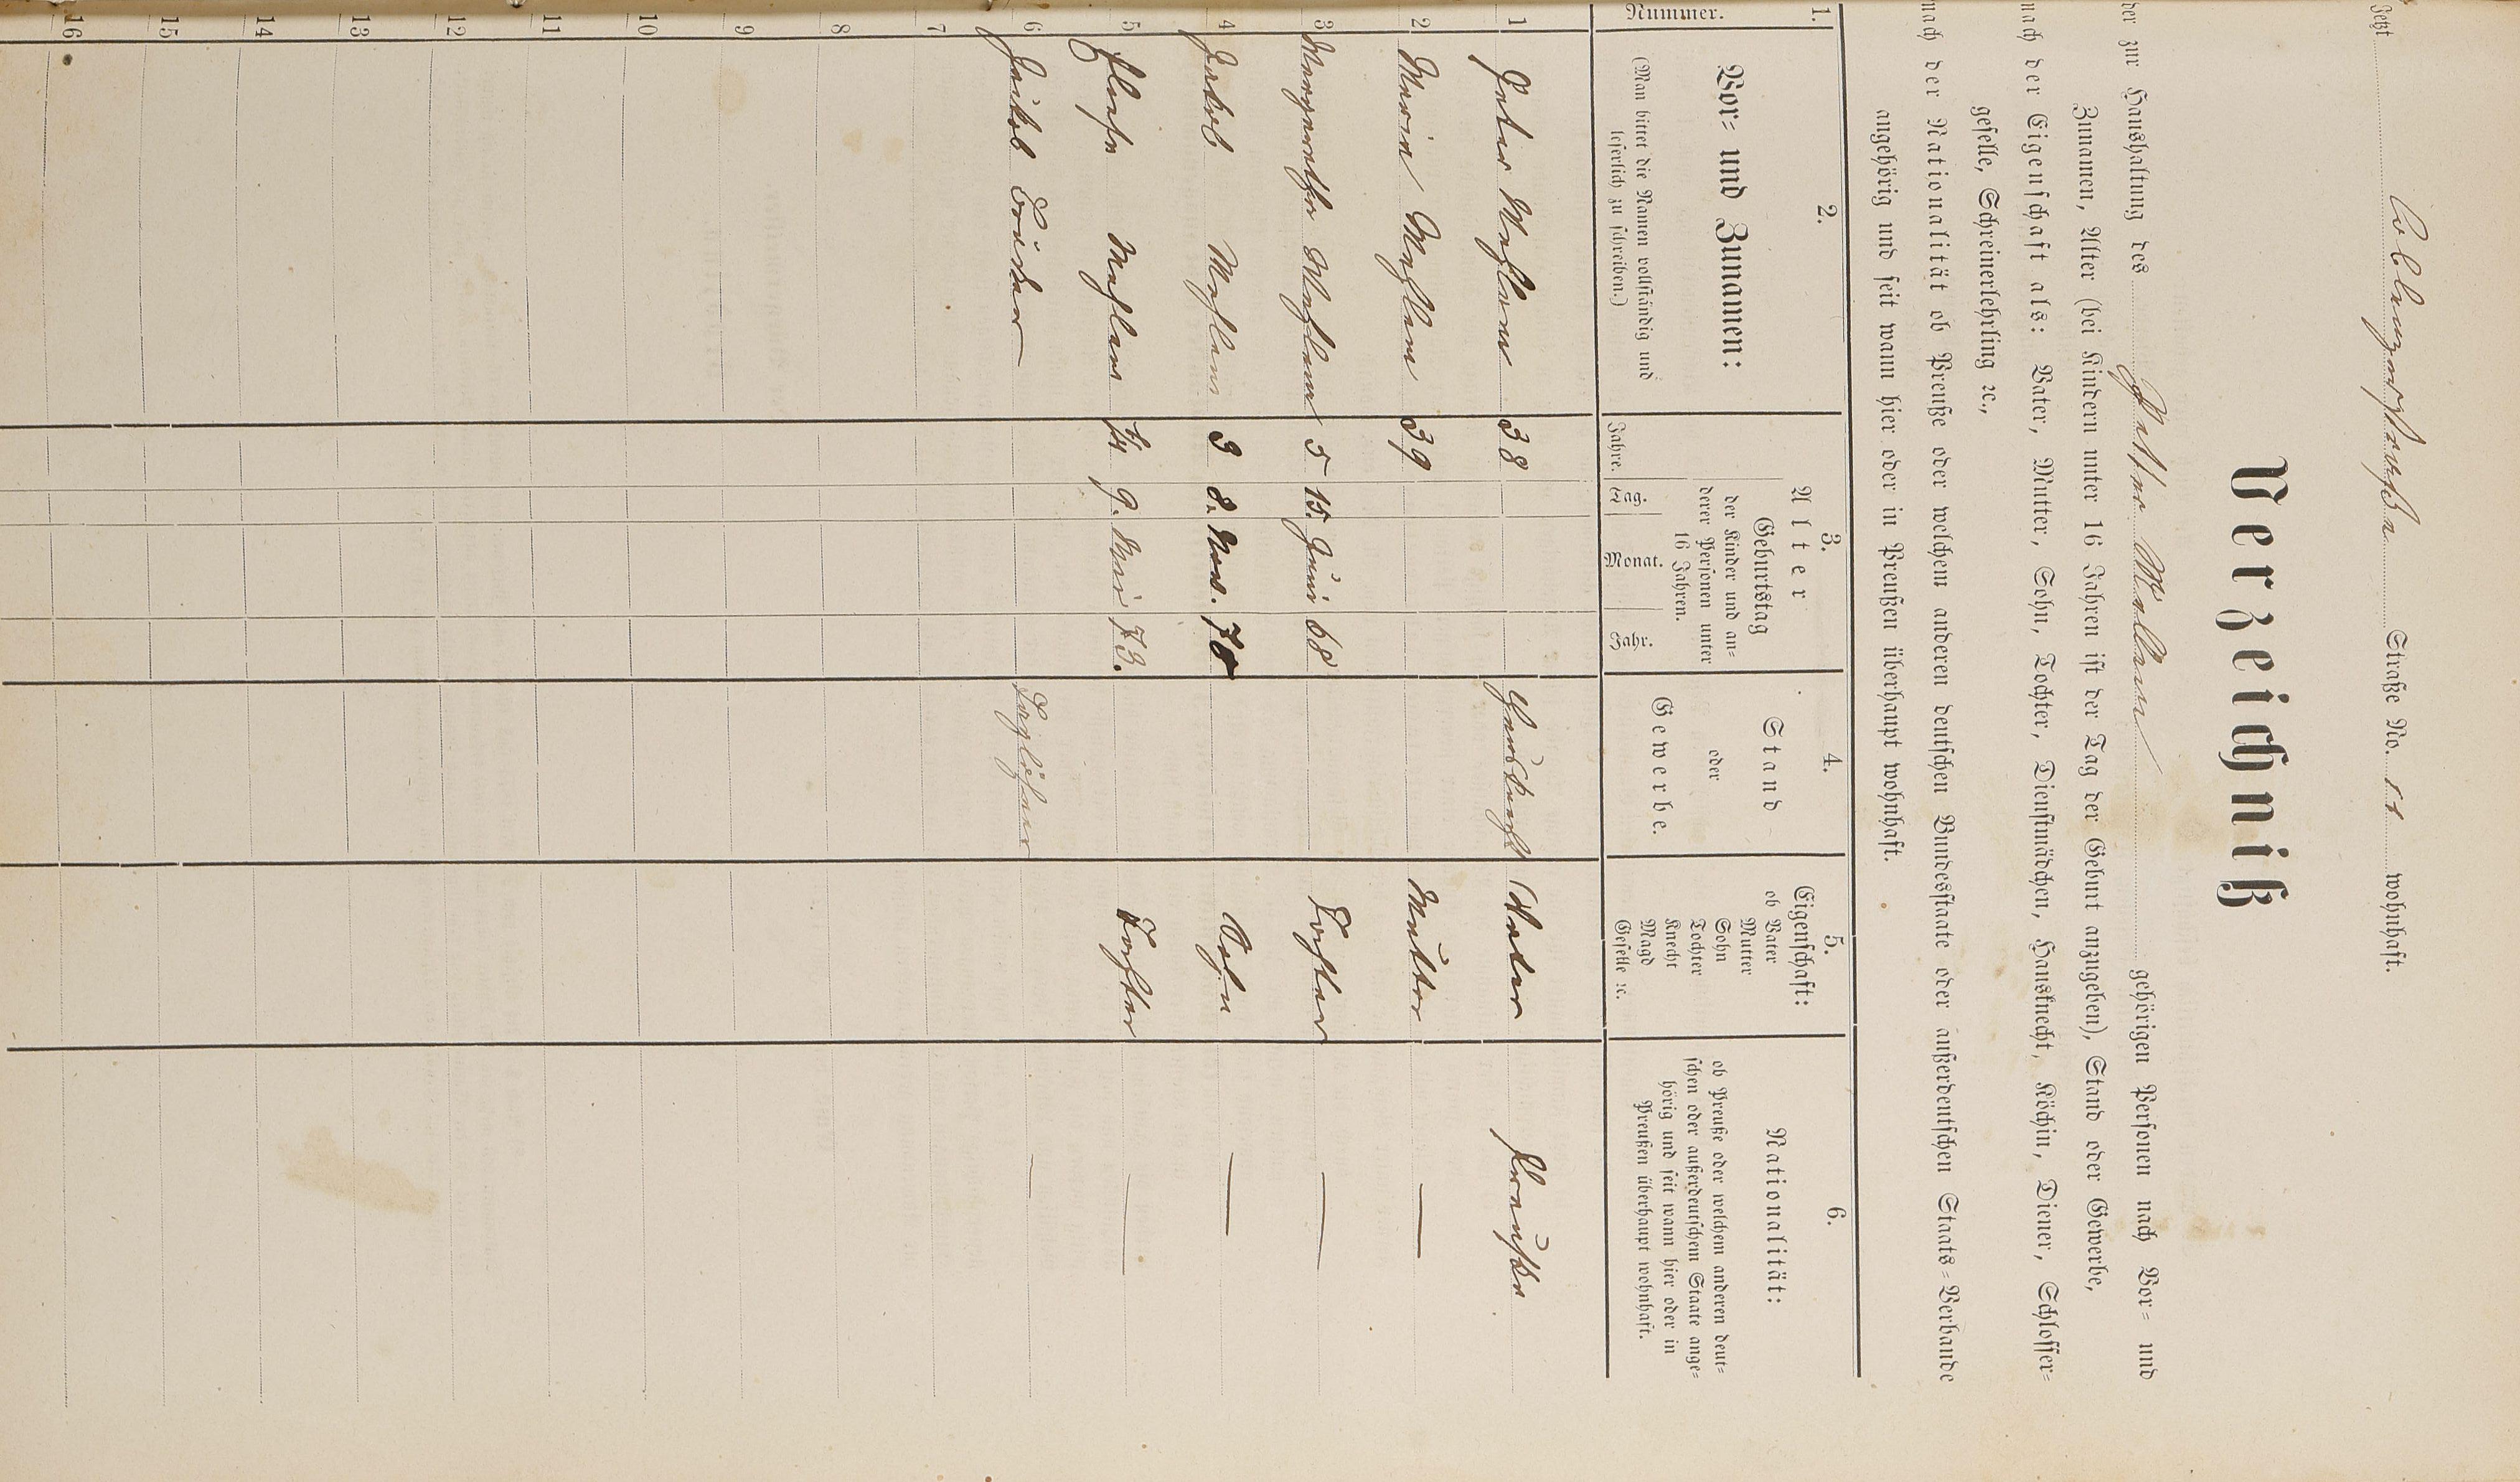 Jetzt Coblenzerstraße Straße No. 11 wohnhaft.
Verzeichniß
der zur Haushaltung des gehörigen Personen nach Vor- und
Zunamen, Alter (bei Kindern unter 16 Jahren ist der Tag der Geburt anzugeben), Stand oder Gewerbe,
nach der Eigenschaft als: Vater, Mutter, Sohn, Tochter, Dienstmädchen, Hausknecht, Köchin, Diener, Schlosser-
geselle, Schreinerlehrling ꝛc.,
nach der Nationalität ob Preuße oder welchem anderen deutschen Bundesstaate oder außerdeutschen Staats-Verbande
angehörig und seit wann hier oder in Preußen überhaupt wohnhaft.
1. 2. 3. 4. 5. 6.
Nummer.
Vor- und Zunamen:
(Man bittet die Namen vollständig und
leserlich zu schreiben.)
Alter
Geburtstag
der Kinder und an-
derer Personen unter
16 Jahren.
Jahre. Tag. Monat. Jahr.
Stand
oder
Gewerbe.
Eigenschaft:
ob Vater
Mutter
Sohn
Tochter
Knecht
Magd
Geselle ꝛc.
Nationalität:
ob Preuße oder welchem anderen deut-
schen oder außerdeutschem Staate ange-
hörig und seit wann hier oder in
Preußen überhaupt wohnhaft.
1 Peter 38 Vater Preuße
2 Maria 39 Mutter —
3 Margaretha 5 15. Juni 68 Tochter —
4 Jakob 3 8. Nov. 70 Sohn —
5 ¼ 9. Mai 73. Tochter —
6 Jakob Taglöhner —
7
8
9
10
11
12
13
14
15
16